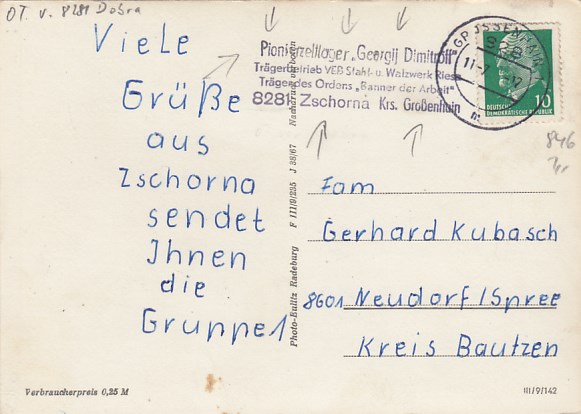 OT. v. 8281 Dobra
Viele
Grüße
aus
Zschorna
sendet
Ihnen
die
Gruppe 1
Pionierzeltlager „Georgij Dimitroff"
Trägerbetrieb VEB Stahl- u. Walzwerk Riesa
Träger des Ordens „Banner der Arbeit"
8281 Zschorna Krs. Großenhain
10
DEUTSCHE
DEMOKRATISCHE REPUBLIK
846
Fam
Gerhard Kubasch
8601 Neudorf/Spree
Kreis Bautzen
Photo-Bulitz Radeburg F III/9/235 J 38/67 Nachdruck verboten
Verbraucherpreis 0,25 M
III/9/142